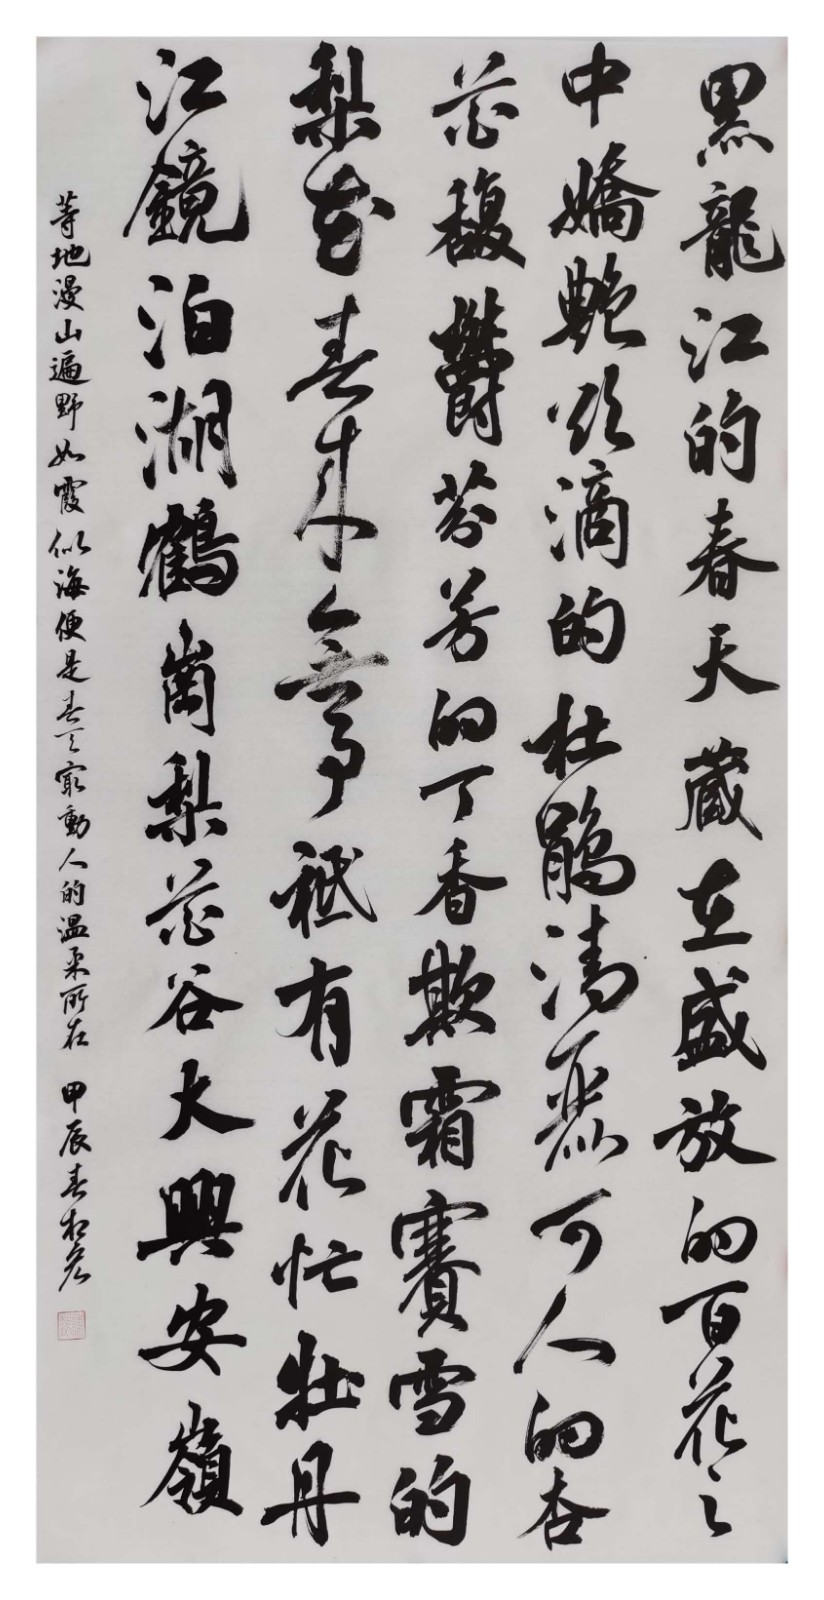 黑龍江的春天蔵在盛放的百花之
中嬌艷欲滴的杜鵑清麗可人的杏
花馥鬱芬芳的丁香欺霜賽雪的
梨花春來無事祇有花忙牡丹
江鏡泊湖鶴崗梨花谷大興安嶺
等地漫山遍野如霞似海便是春天最動人的温柔所在 甲辰春